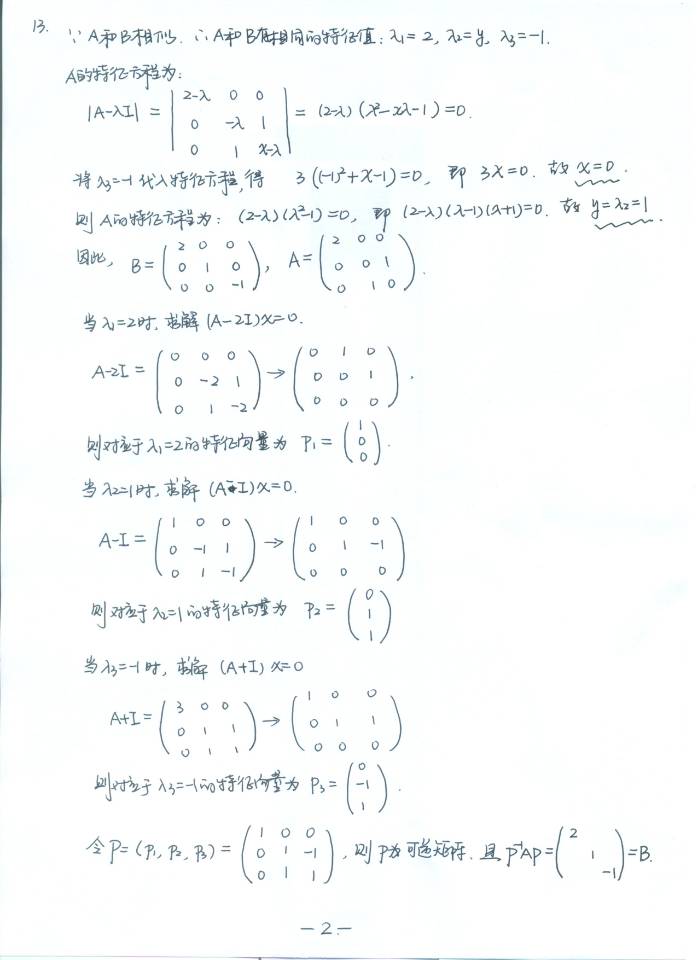 13. ∵ A和B相似. ∴ A和B有相同的特征值: λ₁=2, λ₂=y, λ₃=-1.
A的特征方程为:
|A-λI| = | 2-λ 0 0 ; 0 -λ 1 ; 0 1 x-λ | = (2-λ)(λ²-xλ-1)=0.
将λ₃=-1代入特征方程,得 3((-1)²+x-1)=0, 即 3x=0. 故 x=0.
则A的特征方程为: (2-λ)(λ²-1)=0, 即 (2-λ)(λ-1)(λ+1)=0. 故 y=λ₂=1.
因此, B=( 2 0 0 ; 0 1 0 ; 0 0 -1 ), A=( 2 0 0 ; 0 0 1 ; 0 1 0 ).
当λ₁=2时, 求解(A-2I)x=0.
A-2I = ( 0 0 0 ; 0 -2 1 ; 0 1 -2 ) → ( 0 1 0 ; 0 0 1 ; 0 0 0 ).
则对应于λ₁=2的特征向量为 P₁=( 1 ; 0 ; 0 ).
当λ₂=1时, 求解(A-I)x=0.
A-I = ( 1 0 0 ; 0 -1 1 ; 0 1 -1 ) → ( 1 0 0 ; 0 1 -1 ; 0 0 0 )
则对应于λ₂=1的特征向量为 P₂=( 0 ; 1 ; 1 )
当λ₃=-1时, 求解 (A+I)x=0
A+I = ( 3 0 0 ; 0 1 1 ; 0 1 1 ) → ( 1 0 0 ; 0 1 1 ; 0 0 0 )
则对应于λ₃=-1的特征向量为 P₃=( 0 ; -1 ; 1 ).
令P=(P₁, P₂, P₃)=( 1 0 0 ; 0 1 -1 ; 0 1 1 ), 则P为可逆矩阵. 且P⁻¹AP=( 2 ; 1 ; -1 )=B.
-2-